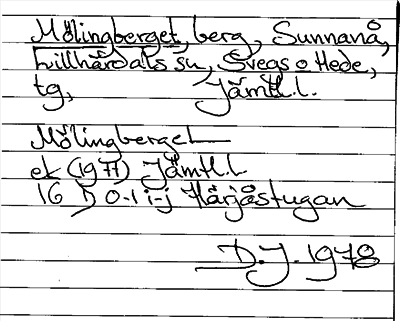 Mölingberget, berg, Sunnanå,
Lillhärdals sn, Svegs o Hede,
tg, Jämtl.l.
Mölingberget
ek (1971) Jämtl.l
16 D 0-1 i-j Härjåstugan
D.J. 1978